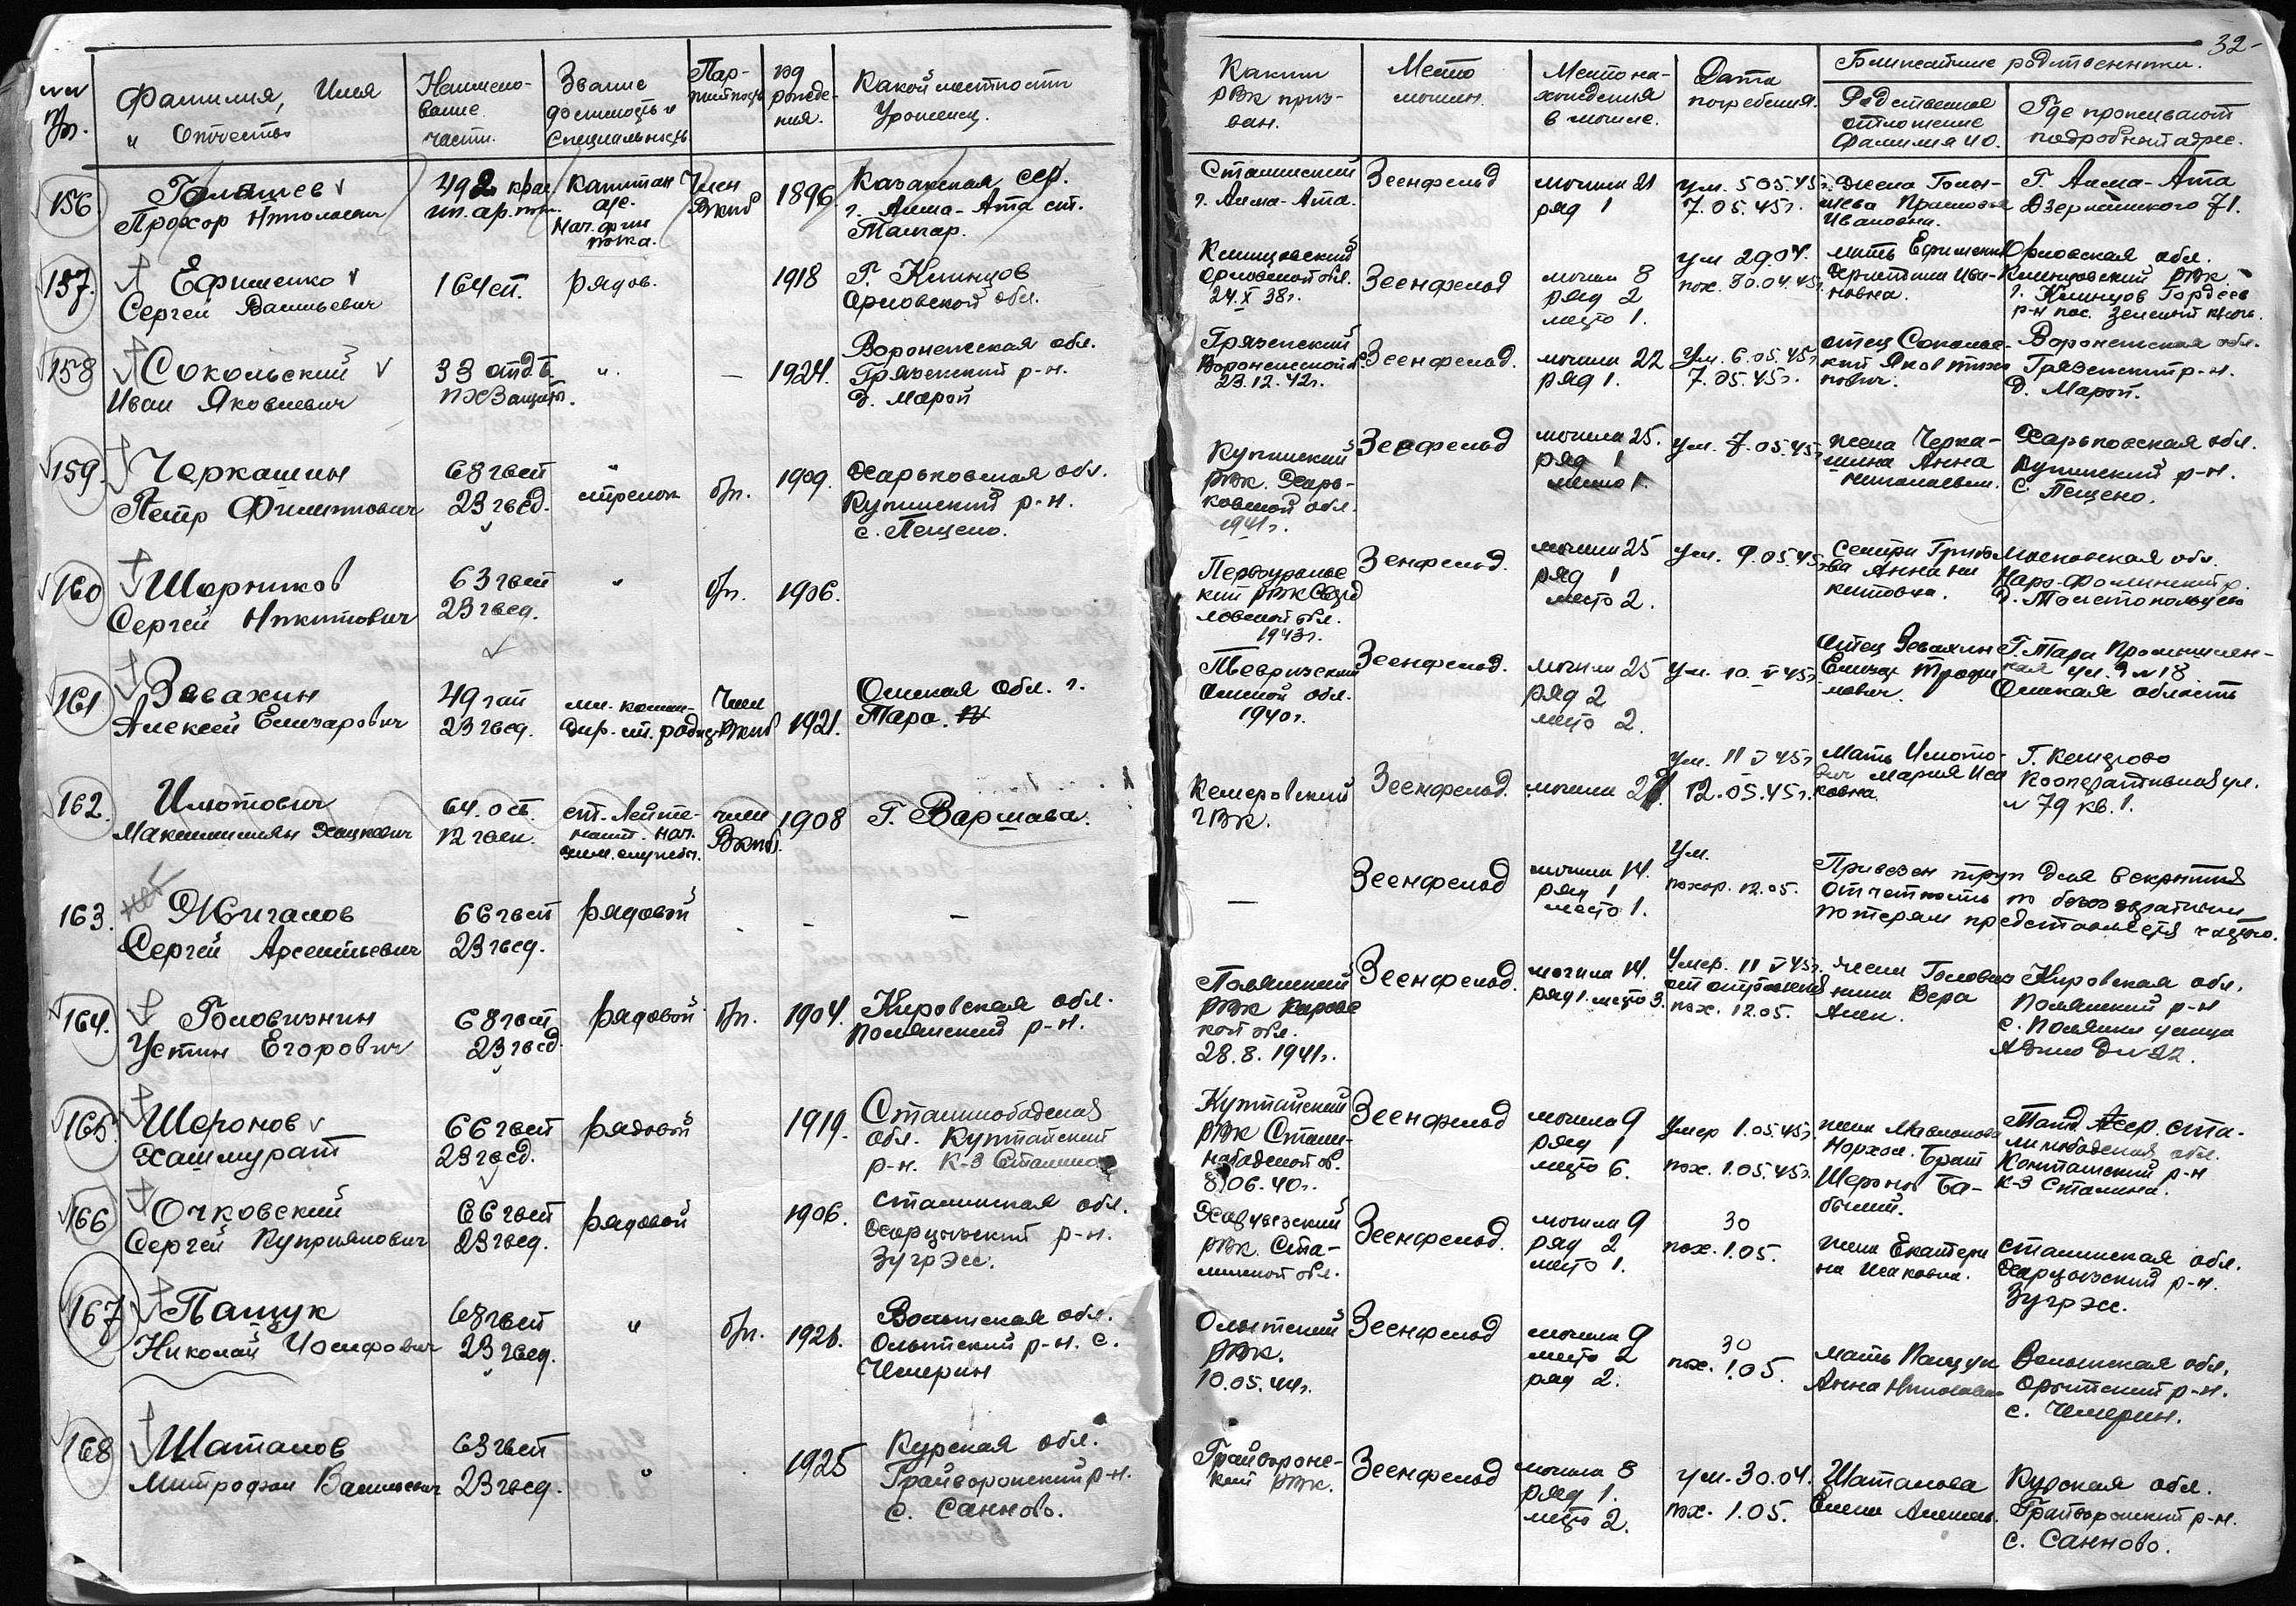 32-
№№ п/п.
Фамилия, Имя и Отчество
Наимено-вание части.
Звание должность и специальность
Пар-тийность
год рожде-ния.
Какой местности Уроженец.
Каким РВК приз-ван.
Место могилы.
Место на-хождения в могиле.
Дата погребения.
Ближайшие родственники.
Родственное отношение Фамилия ИО.
Где проживают подробный адрес.
156.
Прохор Николаевич
492
капитан а/с. Нач. фин полка.
Член ВКПб
1896
Казахская сср. г. Алма-Ата ст. Талгар.
Сталинский г. Алма-Ата.
Зеенфельд
могила 21 ряд 1
ум. 5.05.45г. 7.05.45г.
жена Ивановна.
Г. Алма-Ата Дзержинского 71.
157.
Ефименко Сергей Васильевич
164 сп.
рядов.
1918
Г. Клинцов Орловской обл.
Клинцовский Орловской обл. 24.X 38г.
Зеенфельд
могила 8 ряд 2 место 1.
ум 29.04. пох. 30.04.45г.
мать Ефименко Христина Ива-новна.
Орловская обл. Клинцовский РВК г. Клинцов Гордеев р-н пос.
158
Сокольский Иван Яковлевич
33 отд б. ПХЗащиты.
"
—
1924.
Воронежская обл. Грязенский р-н. д. Марой
Грязенский Воронежской о. 23.12.42г.
Зеенфельд.
могила 22 ряд 1.
Ум. 6.05.45г 7.05.45г.
отец Сокольс-кий Яков
Воронежская обл. Грязенский р-н. д. Марой.
159.
Черкашин Петр Филиппович
68 гвсп 23 гвсд.
" стрелок
б/п.
1909.
Харьковская обл. Купинский р-н. с. Пещено.
Купинский РВК. Харь-ковской обл. 1941г.
Зенфельд
могила 25. ряд 1 место 1.
ум. 7.05.45г
жена Черка-шина Анна
Харьковская обл. Купинский р-н. с. Пещено.
160
Шорников Сергей Никитович
63 гвсп 23 гвсд.
"
б/п.
1906.
Первоуральс-кий РВК Сверд ловской обл. 1943г.
Зенфельд.
могила 25 ряд 1 место 2.
ум. 9.05.45
сестра Анна Ни китовна.
Московская обл. Наро-Фоминский р.
161
Завахин Алексей Елизарович
49 гап 23 гвсд.
мл. коман-дир. ст. радист
Член ВКПб
1921.
Омская Обл. г. Тара.
Тевризский Омской обл. 1940г.
Зеенфельд.
могила 25 ряд 2 место 2.
Ум. 10.V 45г.
отец Елизар Трофи мович.
Г. Тара Промышлен-ная ул. Омская область
162.
Имотович Максимилиян
64. осб. 12 гвтк.
ст. Лейте-нант. Нач. хим. службы.
член ВКПб.
1908
Г. Варшава.
Кемеровский ГВК.
Зеенфельд.
могила
ум. 11 V 45г 12.05.45г.
Мать Имото-вич Мария Иса ковна.
Г. Кемерово Кооперативная ул. № 79 кв. 1.
163.
нет
Жигалов Сергей Арсентьевич
66 гвсп 23 гвсд.
рядовой
-
-
—
—
Зеенфельд
могила 14. ряд 1 место 1.
Ум. похор. 12.05.
Привезен труп для вскрытия отчетность по безвозвратным потерям представляется частью.
164.
Головизнин Устин Егорович
68 гвсп 23 гвсд.
рядовой
б/п.
1904.
Кировская обл. Полянский р-н.
Полянский РВК Кировс кой обл. 28.8.1941г.
Зеенфельд.
могила 14. ряд 1. место 3.
Умер. 11 V 45г. от отравления пох. 12.05.
жена Головиз нина Вера Алек.
Кировская обл. Полянский р-н с. Поляны улица
165.
Шеронов Хашмурат
66 гвсп 23 гвсд.
рядовой
1919.
Сталинобадская обл. Куктайский р-н. К-З Сталина
Куктайский РВК Стали-набадской об. 8.06.40г.
Зеенфельд
могила 9 ряд 1 место 6.
Умер 1.05.45г. пох. 1.05.45г.
жена Норхол. Брат Шеронов
Тадж. сср. Ста-линобадская обл. р-н К-З Сталина.
166
Очковский Сергей Куприянович
66 гвсп 23 гвсд.
рядовой
1906.
Сталинская обл. Харцызский р-н. ЗугрЭс.
РВК. Ста-линской обл.
Зеенфельд.
могила 9 ряд 2 место 1.
30 пох. 1.05.
жена Екатери на Исаковна.
Сталинская обл. Харцызский р-н. ЗугрЭс.
167
Пащук Николай Иосифович
68 гвсп 23 гвсд.
"
б/п.
1926.
Волынская обл. Олыкский р-н. с. Чемерин
Олыкский РВК. 10.05.44г.
Зеенфельд
могила 9 место 2 ряд 2.
30 пох. 1.05.
мать Пащук Анна Николаевна
Волынская обл. р-н. с. Чемерин.
168
Шаталов Митрофан Васильевич
63 гвсп 23 гвсд.
"
1925
Курская обл. Грайворонский р-н. с. Санново.
Грайворонс-кий РВК.
Зеенфельд
могила 8 ряд 1. место 2.
ум. 30.04. пох. 1.05.
Шаталова Елена
Курская обл. Грайворонский р-н. с. Санново.